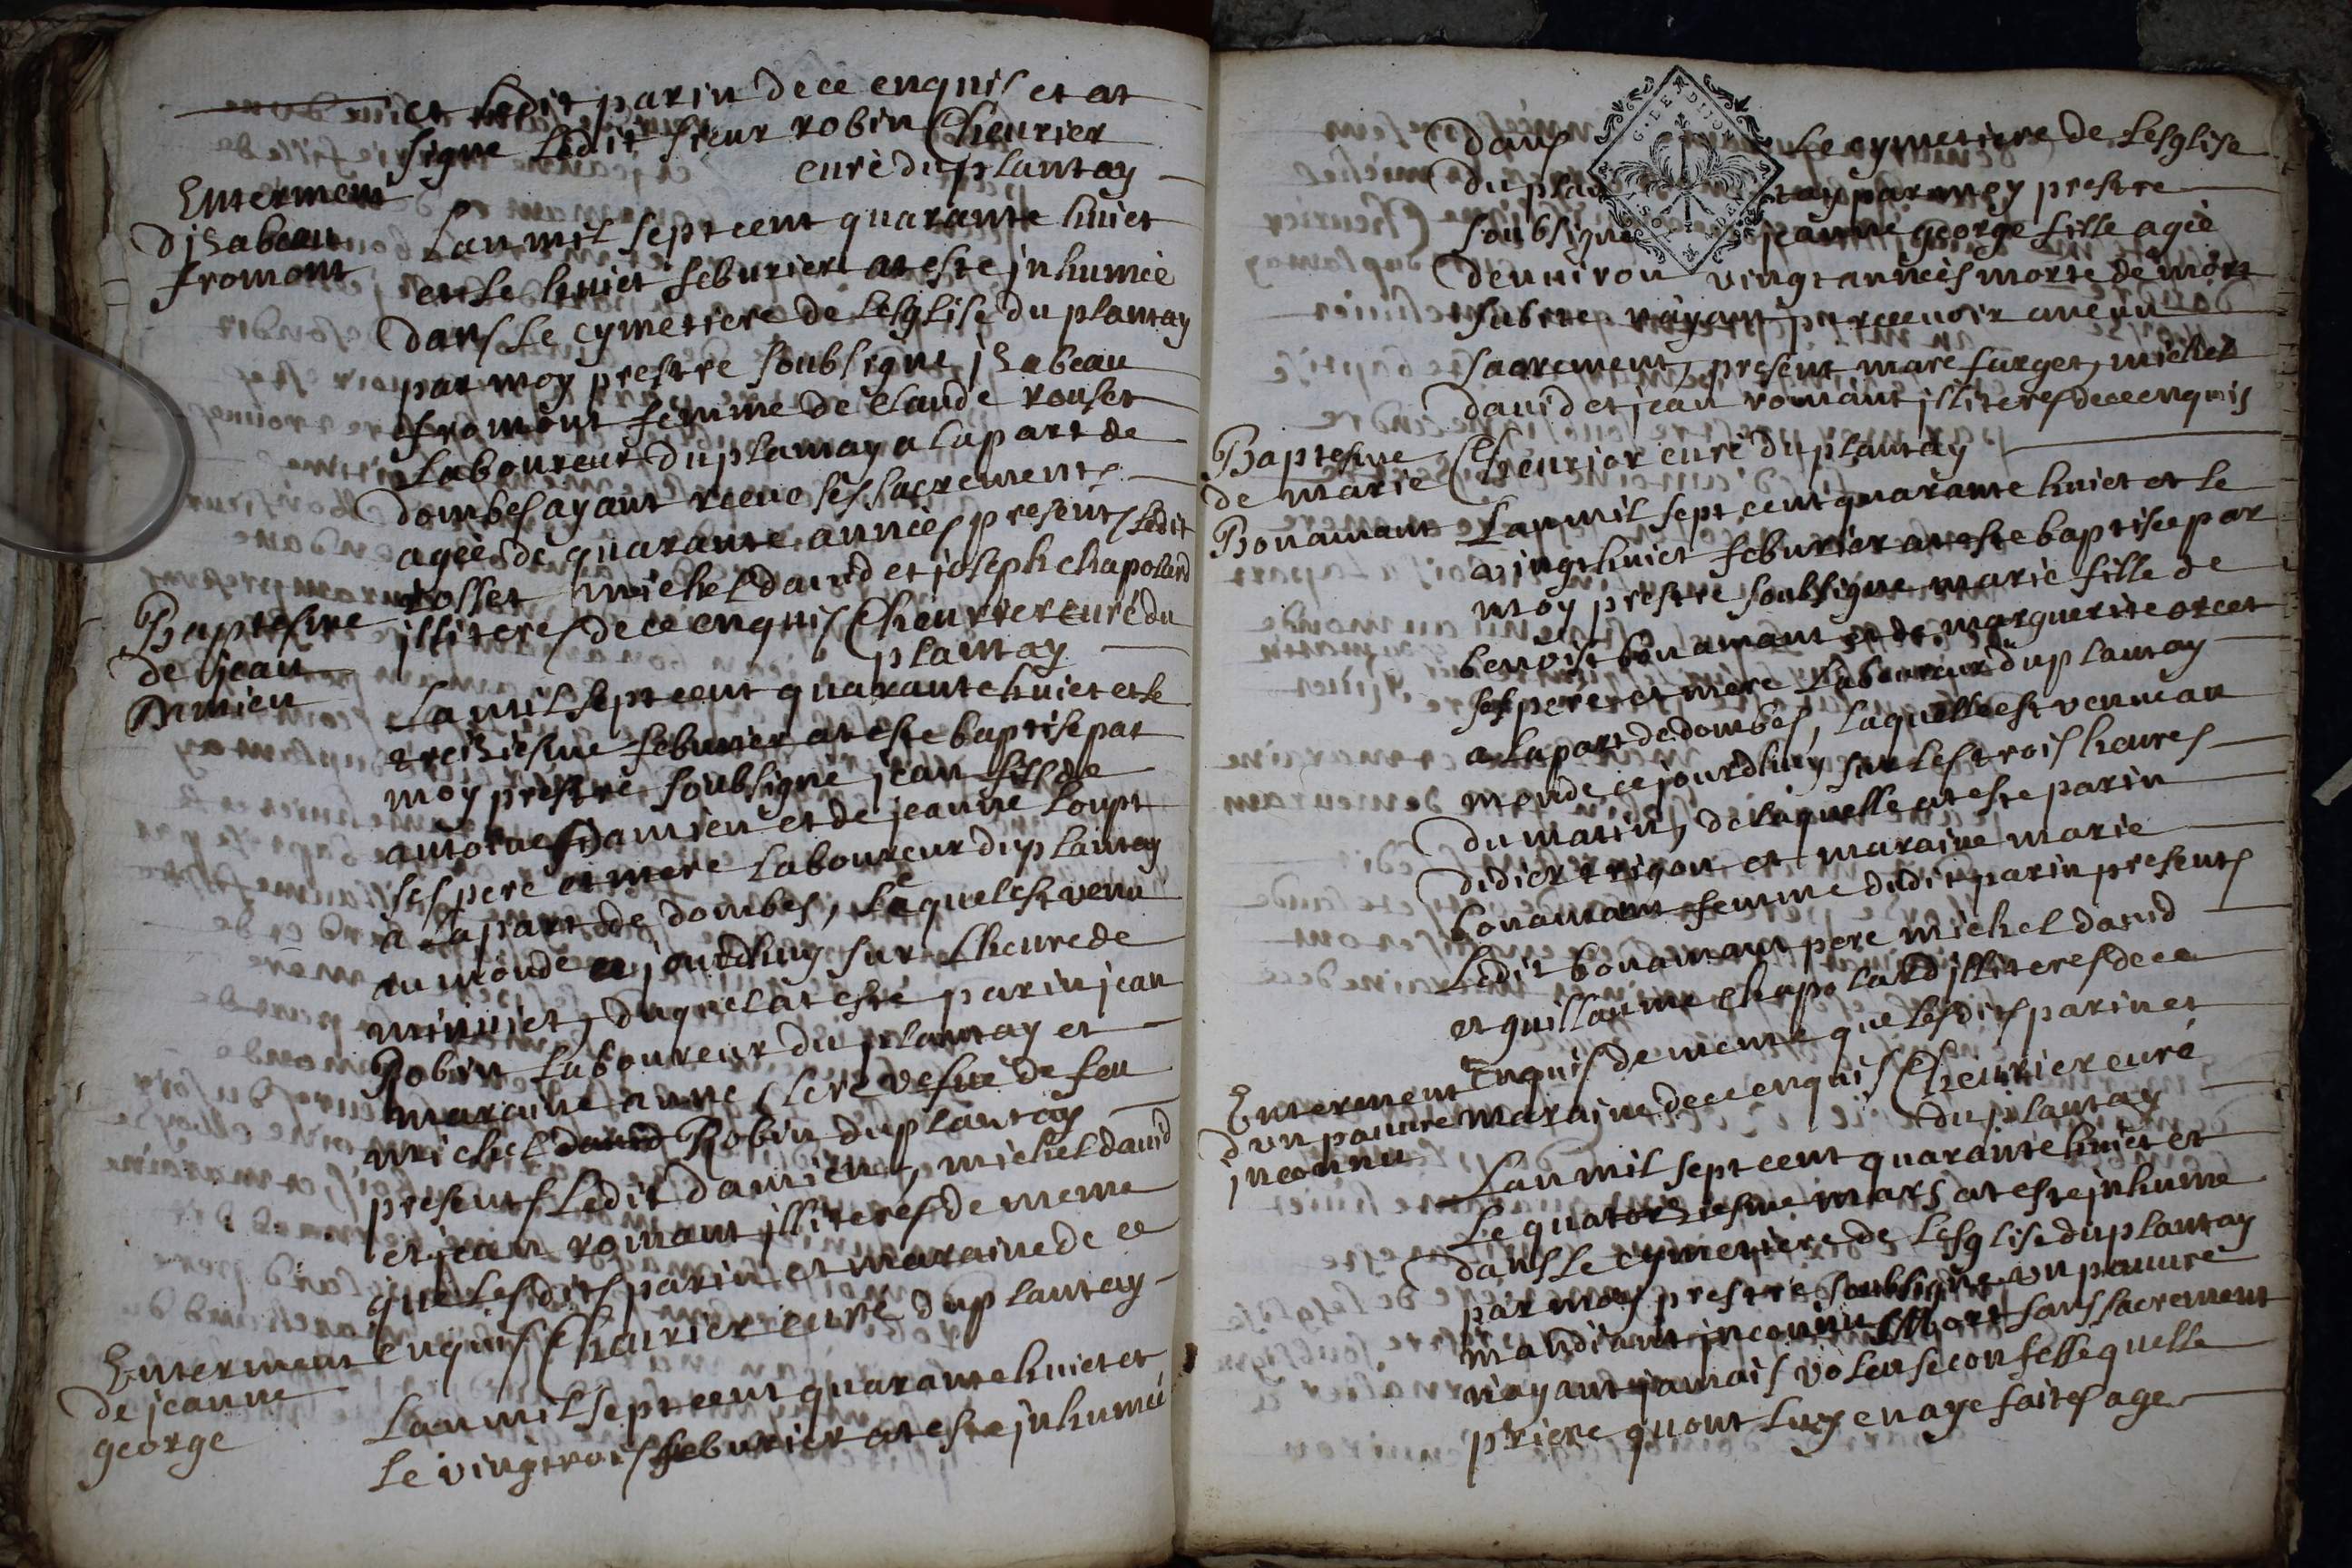 et ledit parin de ce enquis et at
signe ledit sieur robin Cheurier
curé du plantay
Enterment
d'jsabeau
fromont
Lan mil sept cent quarante huict
et le huict feburier at este jnhumée
dans le cymetiere de lesglise du plantay
par moy prestre soubsigne jsabeau
fromont femme de claude rouset
laboureur du plantay a la part de
dombes ayant receu ses sacrements
agée de quarante années presents ledit
rosset michel dauid et joseph chapolard
jlliteres de ce enquis Cheurier curé du
plantay
Baptesme
de jean
Damien
La mil sept cent quarante huict et le
treiziesme feburier at este baptise par
moy prestre soubsigne jean fils de
antoine Damien et de jeanne loupt
ses pere et mere laboureur du plantay
a la part de dombes, lequel est venu
au monde ce jourdhuy sur lheure de
minuict, duquel at esté parin jean
Robin laboureur du plantay et
maraine anne clere vefue de feu
michel Robin du plantay
presents ledit damien, michel dauid
et jean romant jlliteres de meme
que lesdits parin et maraine de ce
enquis Cheurier curé du plantay
Enterment
de jeanne
george
Lan mil sept cent quarante huict et
le vingtrois feburier at este jnhumée
dans le cymetiere de lesglise
du plantay par moy prestre
soubsigne jeanne george fille agée
denuiron vingt années morte de mort
subite nayant pu receuoir aucun
sacrement, present marc farget, michel
dauid et jean romant jlliteres de ce enquis
Cheurier curé du plantay
Baptesme
de marie
Bonamant
Lan mil sept cent quarante huict et le
vingt huict feburier at este baptisee par
moy prestre soubsigne marie fille de
benoist bonamant et de marguerite orcet
ses pere et mere laboureur du plantay
a la part de dombes, laquelle est venue au
monde ce jourdhuy sur les trois heures
du matin, de laquelle at este parin
didier trigon et maraine marie
bonamant femme dudit parin presents
ledit bonamant pere michel dauid
et guillaume chapolard jlliteres de ce
enquis de meme que lesdits parin et
maraine de ce enquis Cheurier curé
du plantay
Enterment
dun pauure
jnconnu
Lan mil sept cent quarante huict et
le quatorziesme mars at este jnhume
dans le cymetiere de lesglise du plantay
par moy prestre soubsigne un pauure
mandiant jnconnu mort sans sacrement
nayant jamais volu se confesse quelle
priere quont luy en aye faites age